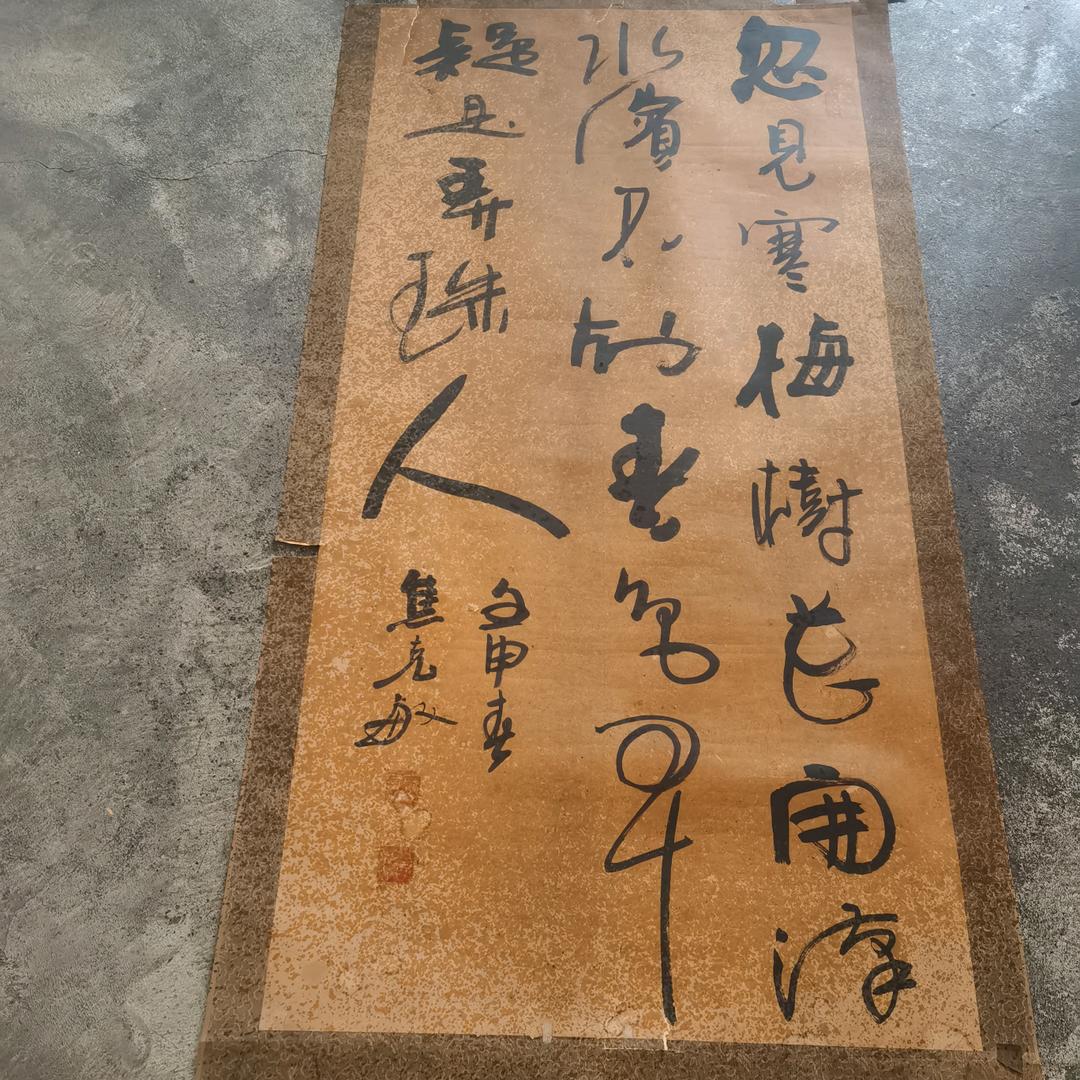 忽見寒梅樹花開漢
水濱不知春色早
疑是弄珠人
壬申春
焦克敏